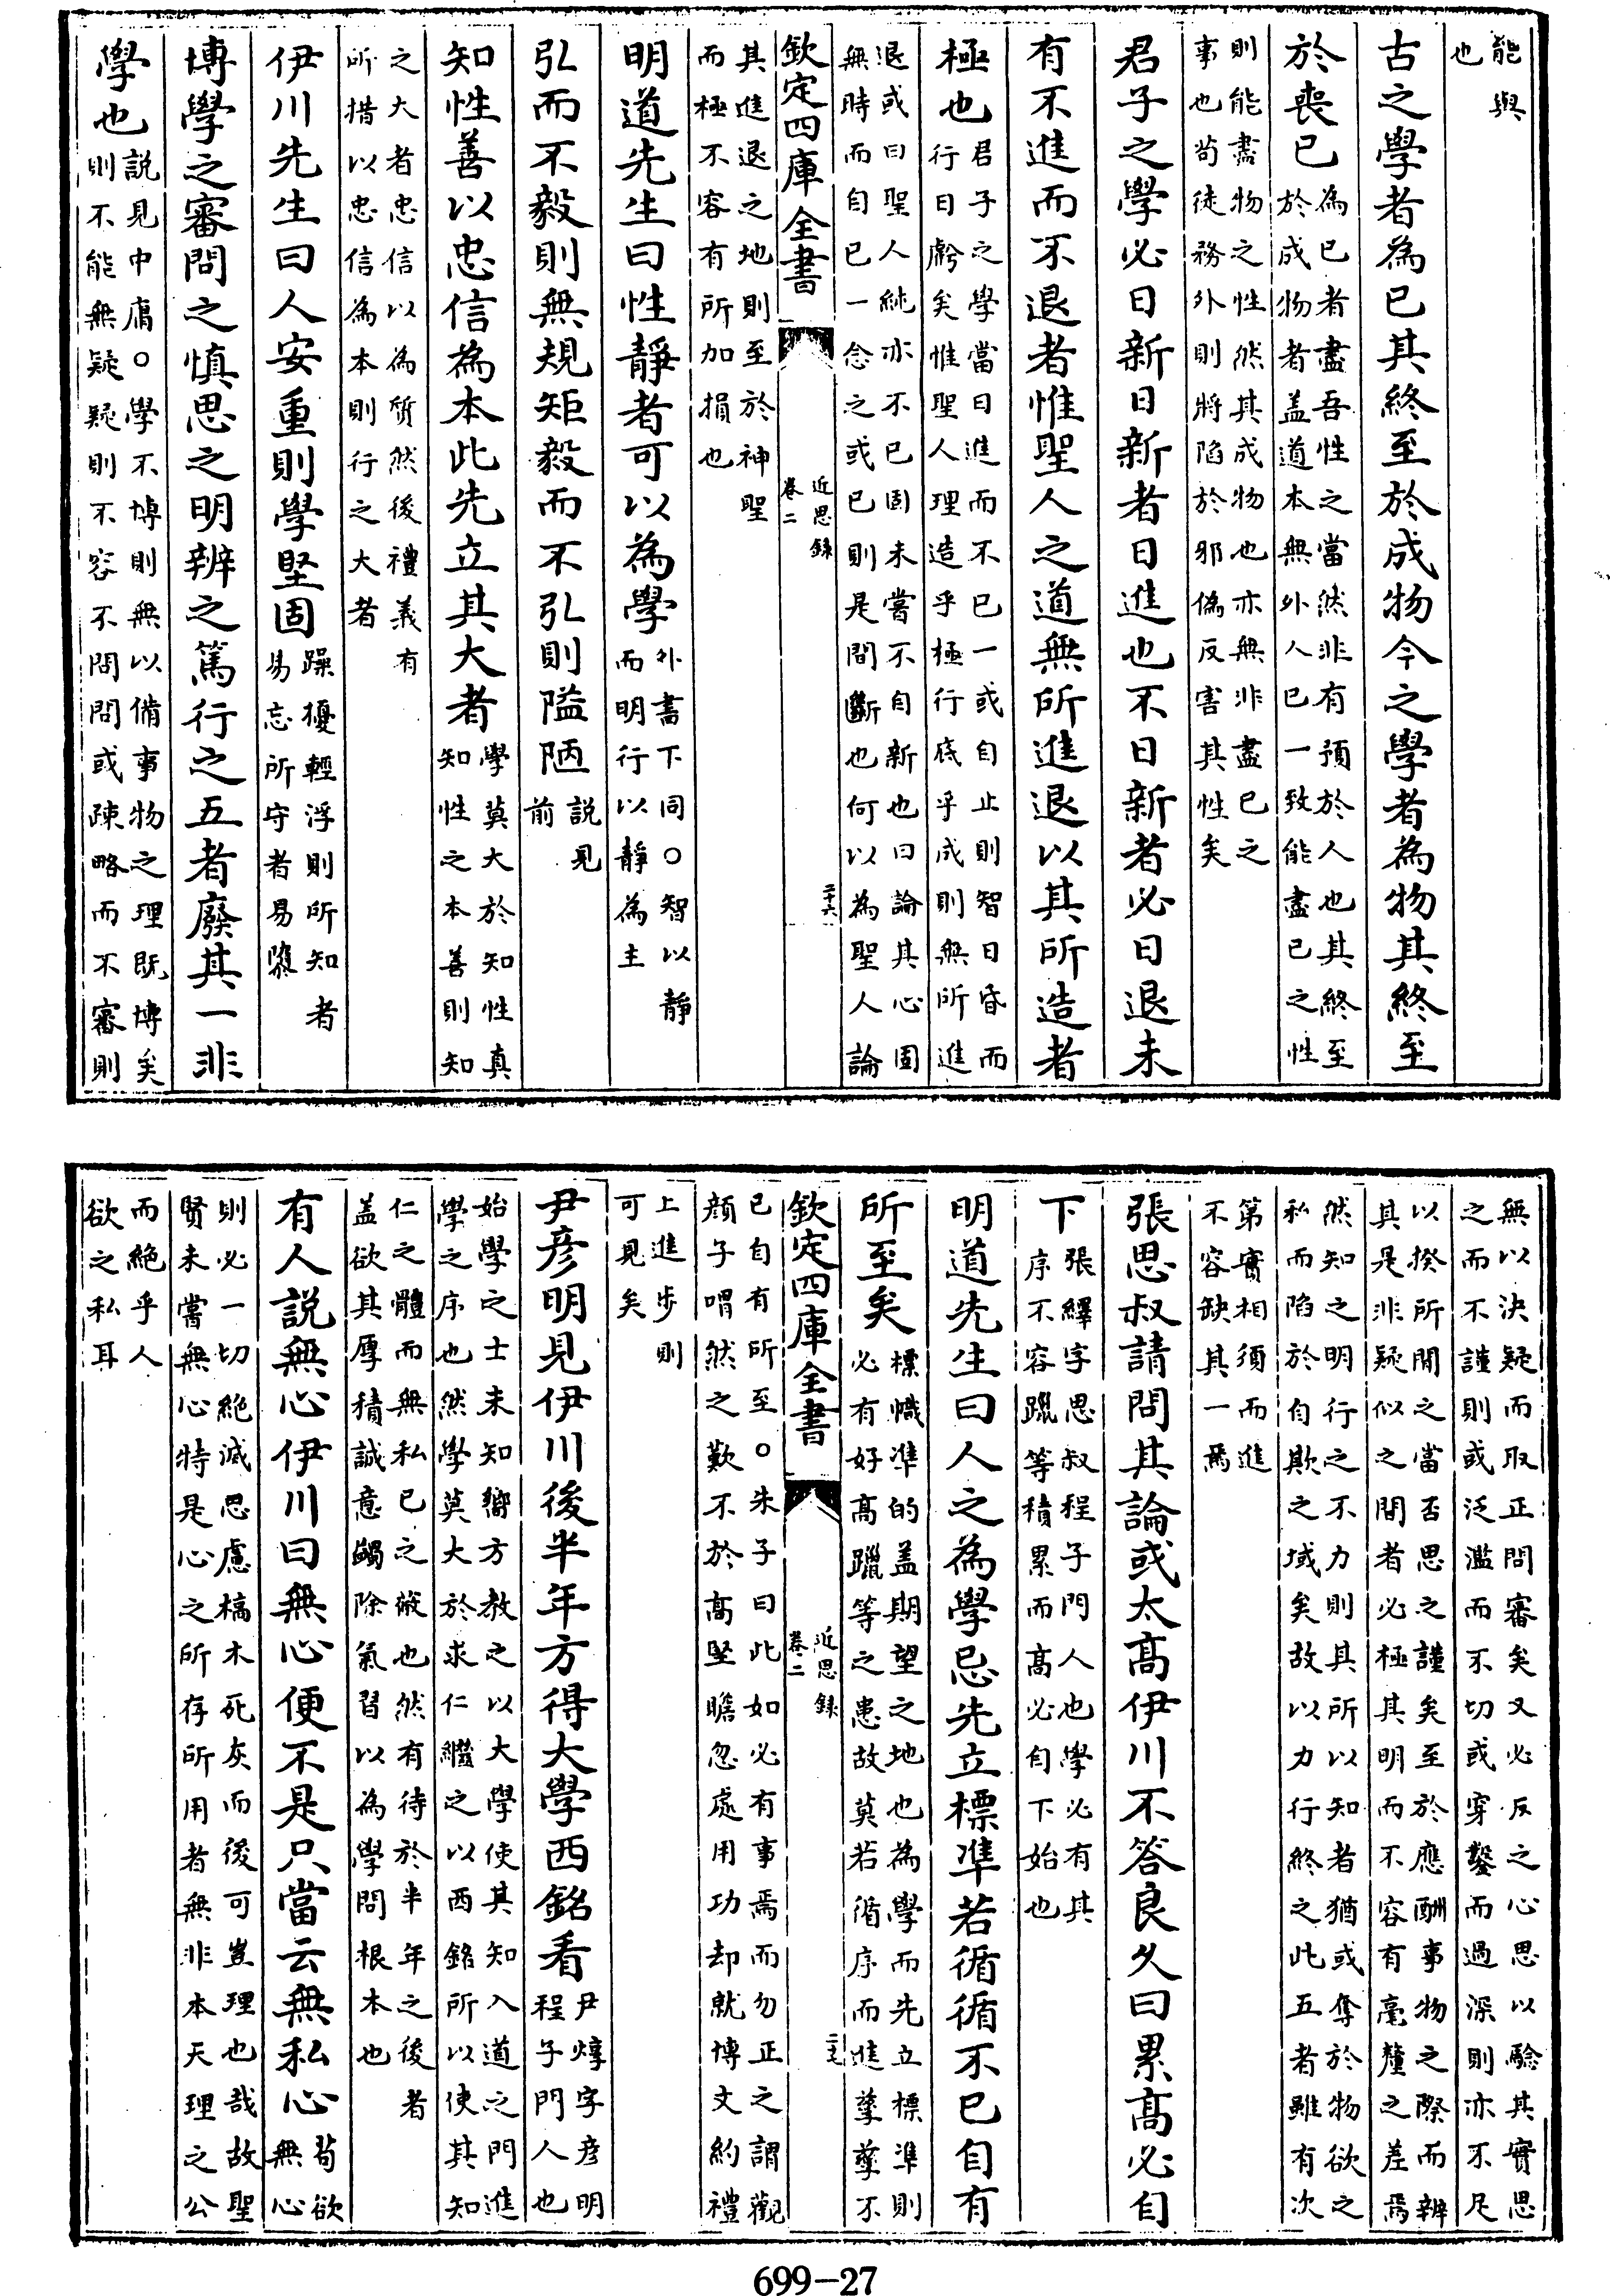 能與
也
古之學者為已其終至於成物今之學者為物其終至
於喪已
為已者盡吾性之當然非有預於人也其終至
於成物者盖道本無外人已一致能盡已之性
則能盡物之性然其成物也亦無非盡已之
事也茍徒務外則將陷於邪偽反害其性矣
君子之學必日新日新者日進也不日新者必日退未
有不進而不退者惟聖人之道無所進退以其所造者
極也
君子之學當日進而不已一或自止則智日昏而
行日虧矣惟聖人理造乎極行底乎成則無所進
退或曰聖人純亦不已固未嘗不自新也曰論其心固
無時而自已一念之或已則是間斷也何以為聖人論
欽定四庫全書
近思録
卷二
二十六
其進退之地則至於神聖
而極不容有所加損也
明道先生曰性靜者可以為學
外書下同○智以靜
而明行以靜為主
弘而不毅則無規矩毅而不弘則隘陋
説見
前
知性善以忠信為本此先立其大者
學莫大於知性真
知性之本善則知
之大者忠信以為質然後禮義有
所措以忠信為本則行之大者
伊川先生曰人安重則學堅固
躁擾輕浮則所知者
易忘所守者易隳
博學之審問之慎思之明辨之篤行之五者廢其一非
學也
説見中庸○學不博則無以備事物之理既博矣
則不能無疑疑則不容不問問或疎略而不審則
無以決疑而取正問審矣又必反之心思以驗其實思
之而不謹則或泛濫而不切或穿鑿而過深則亦不足
以揆所聞之當否思之謹矣至於應酬事物之際而辨
其是非疑似之間者必極其明而不容有毫釐之差焉
然知之明行之不力則其所以知者猶或奪於物欲之
私而陷於自欺之域矣故以力行終之此五者雖有次
第實相須而進
不容缺其一焉
張思叔請問其論或太高伊川不答良久曰累高必自
下
張繹字思叔程子門人也學必有其
序不容躐等積累而高必自下始也
明道先生曰人之為學忌先立標準若循循不已自有
所至矣
標幟準的盖期望之地也為學而先立標準則
必有好高躐等之患故莫若循序而進孳孳不
欽定四庫全書
近思録
卷二
二十七
已自有所至○朱子曰此如必有事焉而勿正之謂觀
顔子喟然之歎不於高堅瞻忽處用功却就博文約禮
上進步則
可見矣
尹彦明見伊川後半年方得大學西銘看
尹焞字彦明
程子門人也
始學之士未知嚮方教之以大學使其知入道之門進
學之序也然學莫大於求仁繼之以西銘所以使其知
仁之體而無私已之蔽也然有待於半年之後者
盖欲其厚積誠意蠲除氣習以為學問根本也
有人説無心伊川曰無心便不是只當云無私心
茍欲
無心
則必一切絶滅思慮槁木死灰而後可豈理也哉故聖
賢未嘗無心特是心之所存所用者無非本天理之公
而絶乎人
欲之私耳
699-27